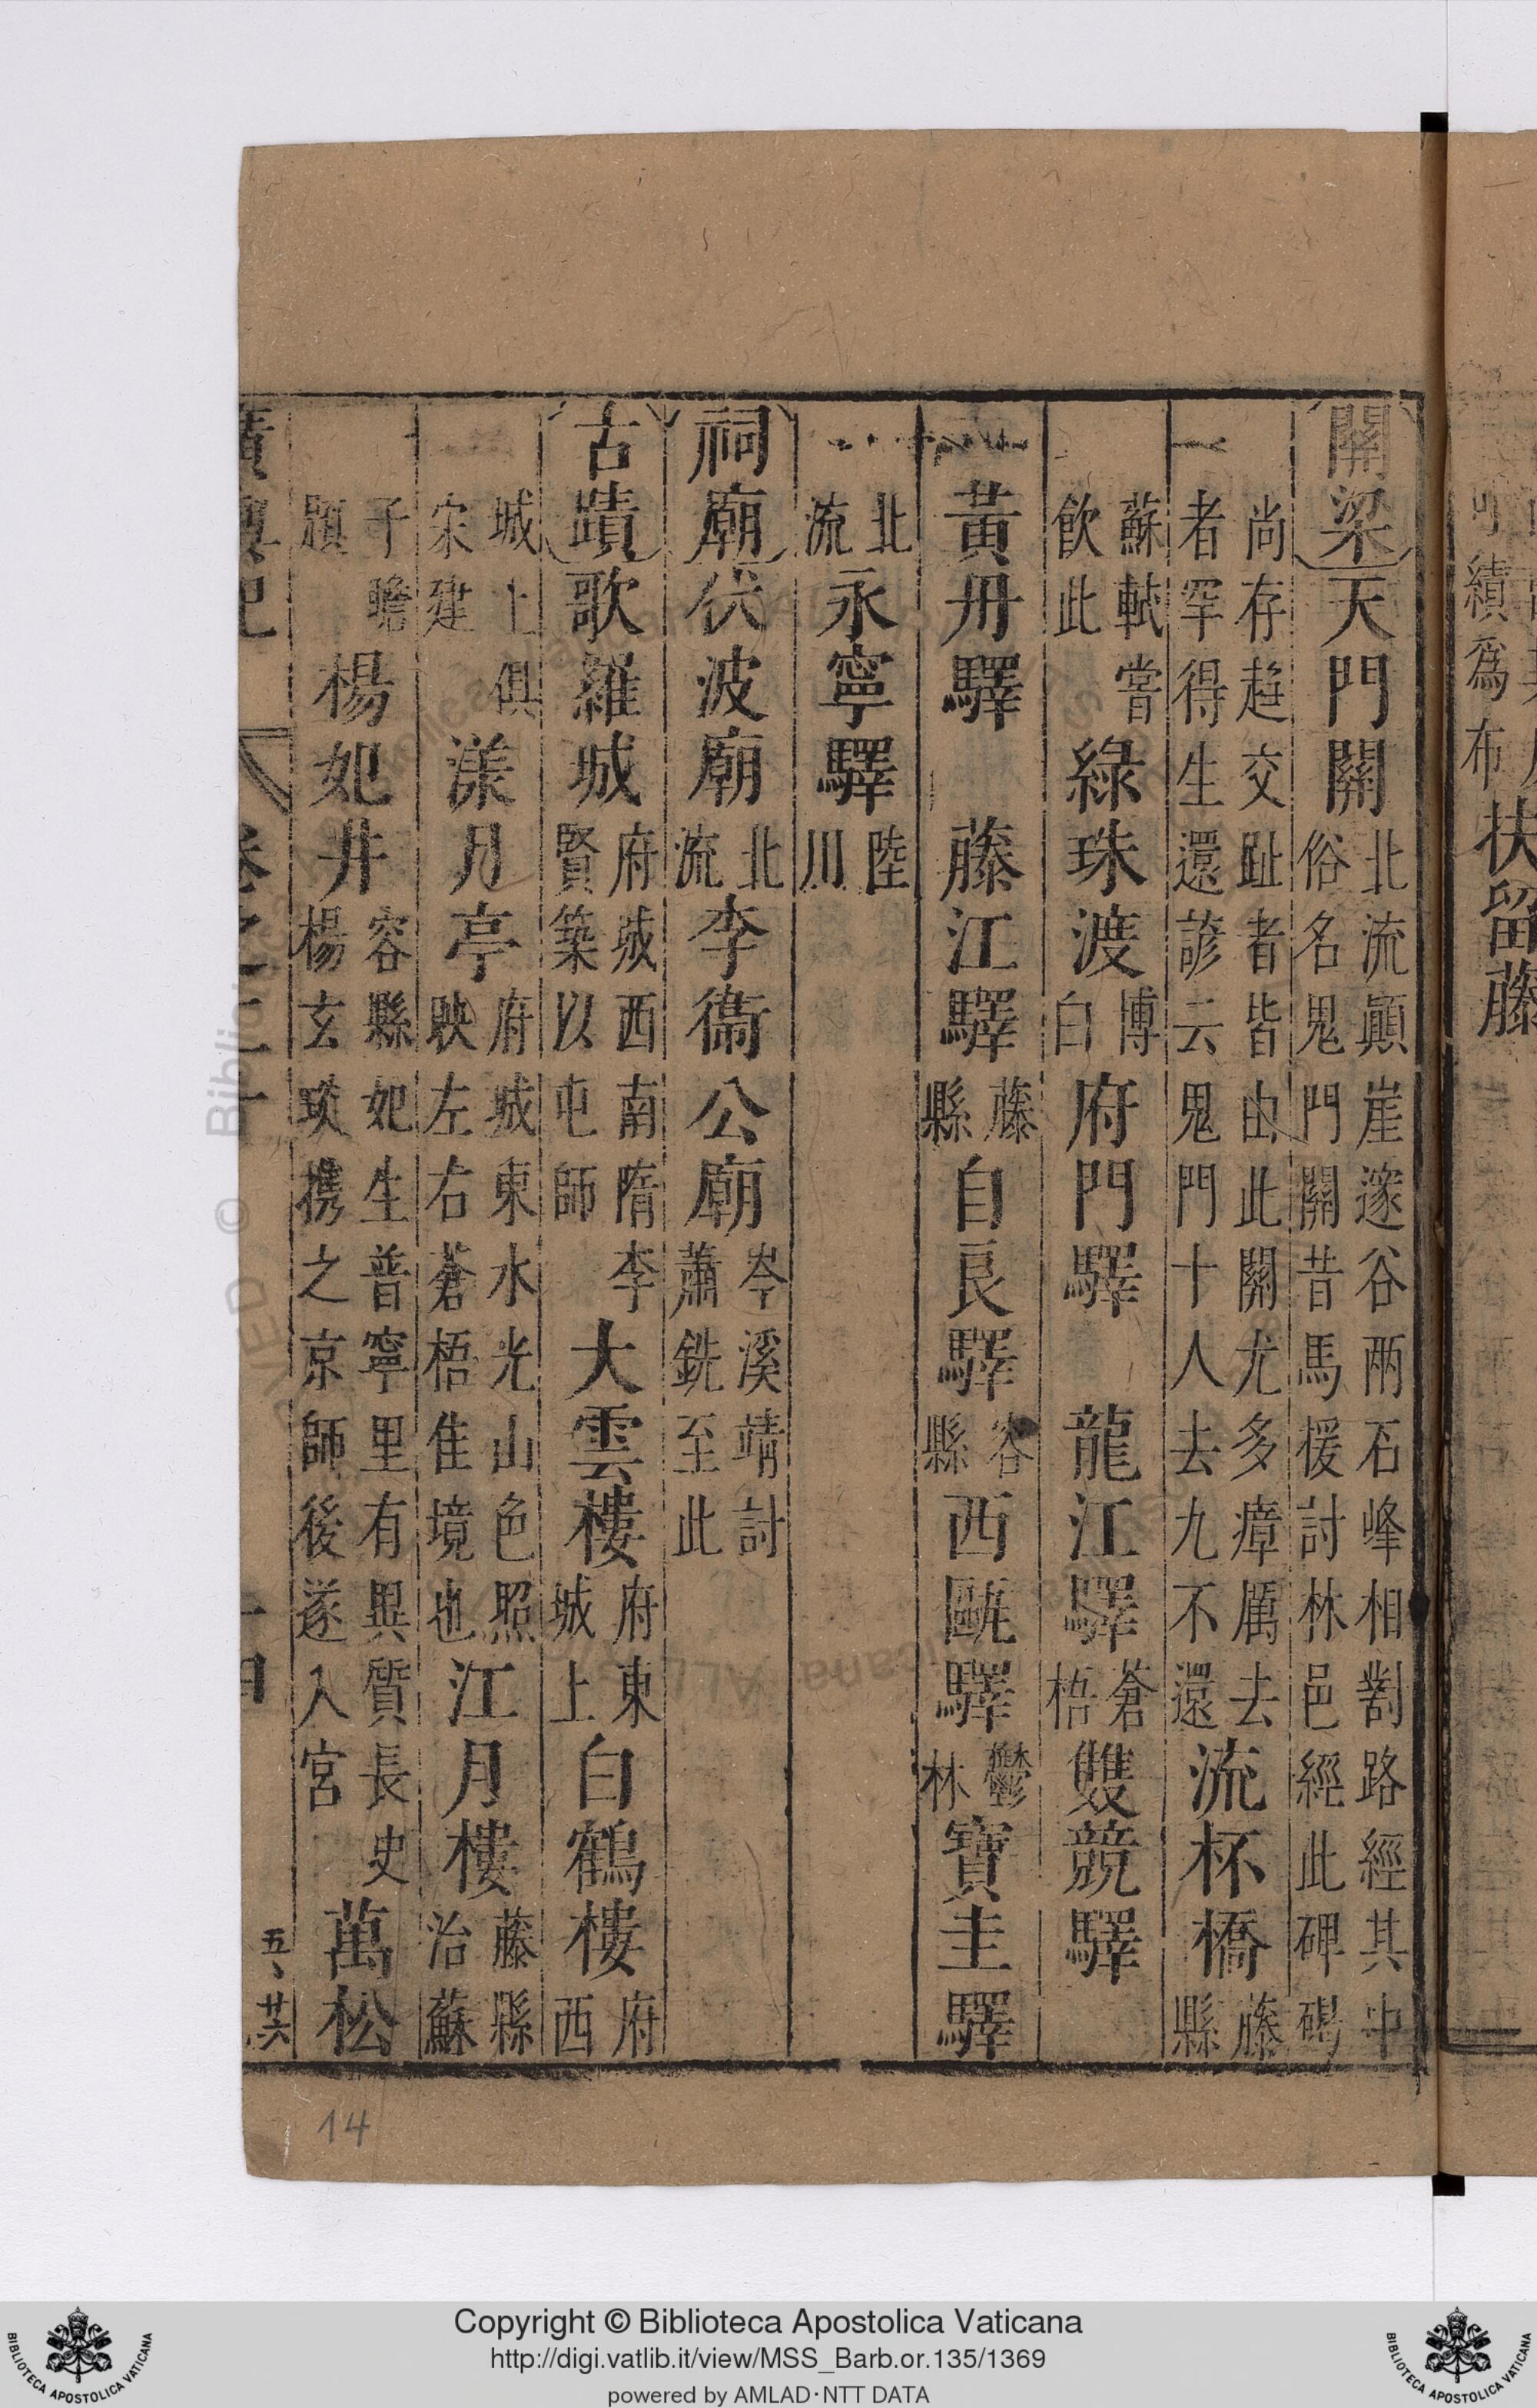 關梁天門關北流顚崖邃谷兩石峰相劃路經其中
俗名鬼門關昔馬援討林邑經此碑碣
尚存趍交趾者皆由此關尤多瘴厲去
者罕得生還諺云鬼門十人去九不還流杯橋藤縣
蘇軾嘗
飲此綠珠渡博白府門驛龍江驛蒼梧雙競驛
黃丹驛藤江驛藤縣自良驛容縣西甌驛鬱林寶圭驛
北流永寧驛陸川
祠廟伏波廟北流李衛公廟岑溪靖討
蕭銑至此
古蹟歌羅城府城西南隋李
賢築以屯師大雲樓府東
城上白鶴樓府西
城上俱
宋建漾月亭府城東水光山色照
映左右蒼梧佳境也江月樓藤縣
治蘇
子瞻
題楊妃井容縣妃生普寧里有異質長史
楊玄琰携之京師後遂入宮萬松
五、廿六
14
可績爲布扶留藤
Copyright © Biblioteca Apostolica Vaticana
http://digi.vatlib.it/view/MSS_Barb.or.135/1369
powered by AMLAD·NTT DATA
BIBLIOTECA APOSTOLICA VATICANA
BIBLIOTECA APOSTOLICA VATICANA